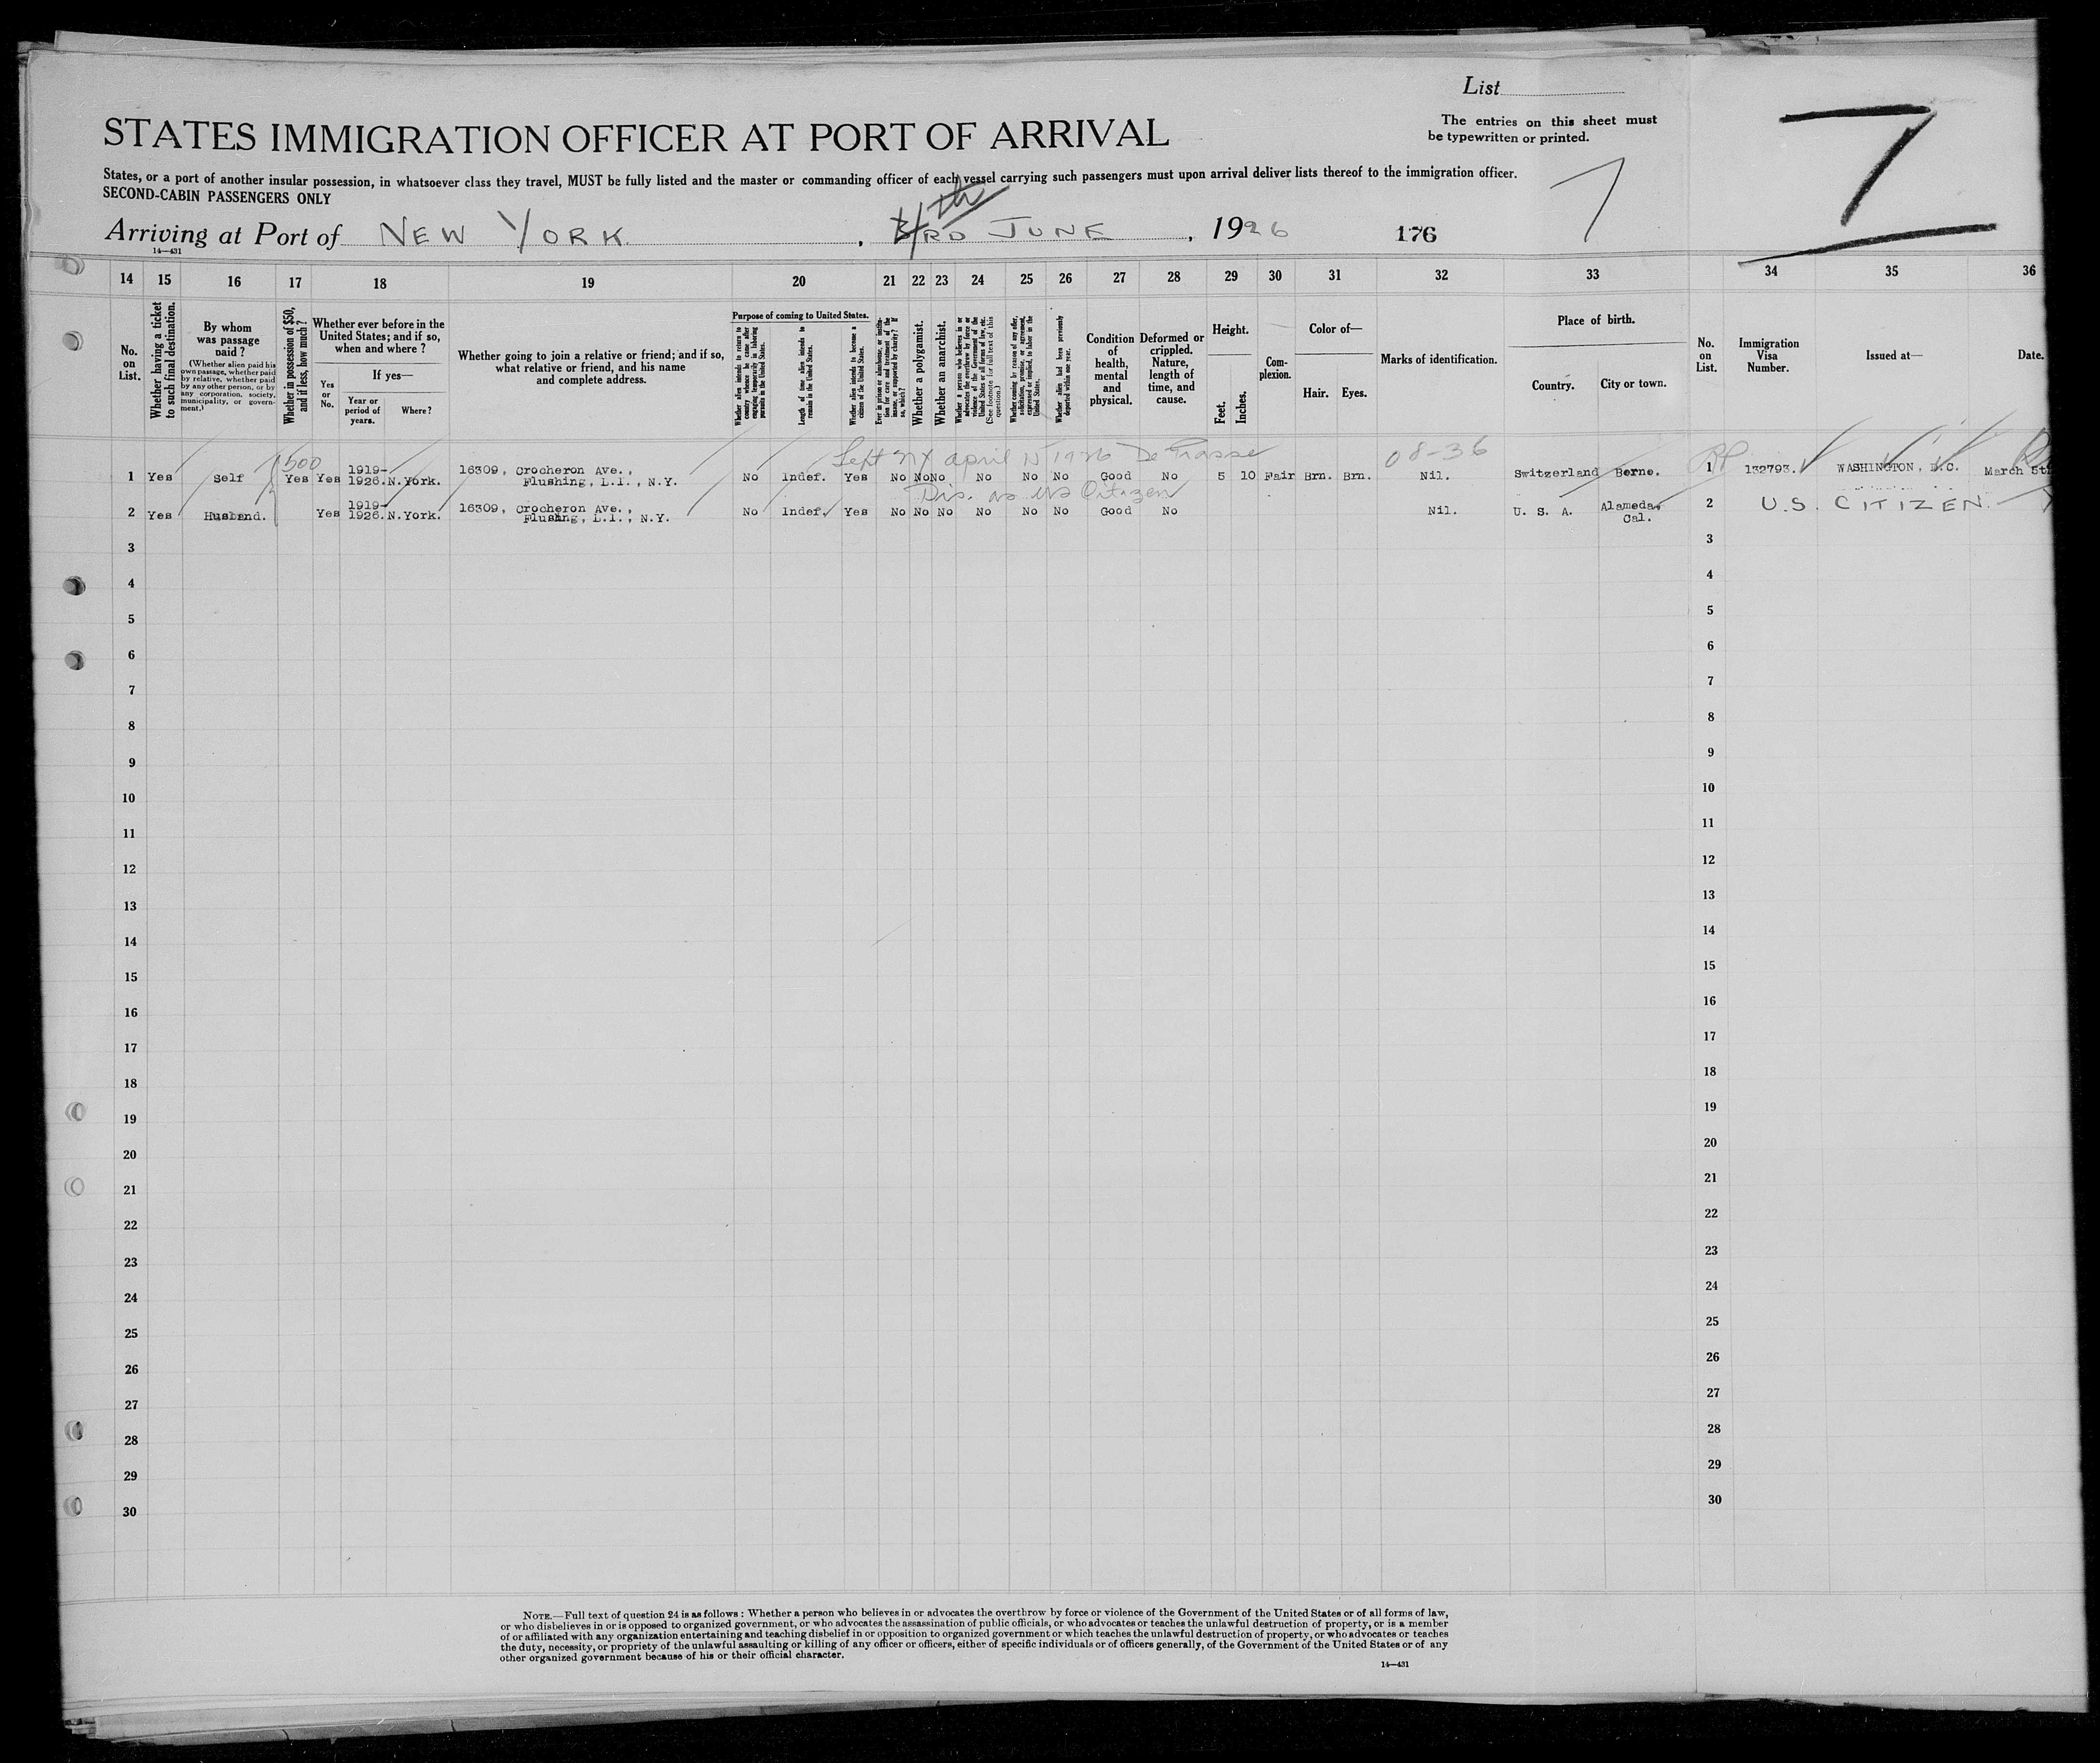 List
STATES IMMIGRATION OFFICER AT PORT OF ARRIVAL
The entries on this sheet must
be typewritten or printed.
States, or a port of another insular possession, in whatsoever class they travel, MUST be fully listed and the master or commanding officer of each vessel carrying such passengers must upon arrival deliver lists thereof to the immigration officer.
SECOND-CABIN PASSENGERS ONLY
Arriving at Port of NEW YORK, 3RD th JUNE, 1926 176
7
7
14—431
14 15 16 17 18 19 20 21 22 23 24 25 26 27 28 29 30 31 32 33 34 35 36
No. on List.
Whether having a ticket to such final destination.
By whom was passage paid?
(Whether alien paid his own passage, whether paid by relative, whether paid by any other person, or by any corporation, society, municipality, or government.)
Whether in possession of $50, and if less, how much?
Whether ever before in the United States; and if so, when and where?
Yes or No.
If yes—
Year or period of years.
Where?
Whether going to join a relative or friend; and if so, what relative or friend, and his name and complete address.
Purpose of coming to United States.
Whether alien intends to return to country whence he came after engaging temporarily in laboring pursuits in the United States.
Length of time alien intends to remain in the United States.
Whether alien intends to become a citizen of the United States.
Ever in prison or almshouse, or institution for care and treatment of the insane, or supported by charity? If so, which?
Whether a polygamist.
Whether an anarchist.
Whether a person who believes in or advocates the overthrow by force or violence of the Government of the United States or all forms of law, etc. (See footnote for full text of this question.)
Whether coming by reason of any offer, solicitation, promise, or agreement, expressed or implied, to labor in the United States.
Whether alien had been previously deported within one year.
Condition of health, mental and physical.
Deformed or crippled. Nature, length of time, and cause.
Height.
Feet. Inches.
Complexion.
Color of—
Hair. Eyes.
Marks of identification.
Place of birth.
Country. City or town.
No. on List.
Immigration Visa Number.
Issued at—
Date.
500 Left NY April 15 1926 De Grasse 08-36
1 Yes Self Yes Yes 1919-1926. N.York. 16309, Crocheron Ave., Flushing, L.I., N.Y. No Indef. Yes No No No No No No Good No 5 10 Fair Brn. Brn. Nil. Switzerland Berne. 1 132793. WASHINGTON, D.C. March 5th
Dis. as US Citizen
2 Yes Husband. Yes 1919-1926. N.York. 16309, Crocheron Ave., Flushing, L.I., N.Y. No Indef. Yes No No No No No No Good No Nil. U. S. A. Alameda, Cal. 2 U.S. CITIZEN.
3 3
4 4
5 5
6 6
7 7
8 8
9 9
10 10
11 11
12 12
13 13
14 14
15 15
16 16
17 17
18 18
19 19
20 20
21 21
22 22
23 23
24 24
25 25
26 26
27 27
28 28
29 29
30 30
NOTE.—Full text of question 24 is as follows: Whether a person who believes in or advocates the overthrow by force or violence of the Government of the United States or of all forms of law,
or who disbelieves in or is opposed to organized government, or who advocates the assassination of public officials, or who advocates or teaches the unlawful destruction of property, or is a member
of or affiliated with any organization entertaining and teaching disbelief in or opposition to organized government or which teaches the unlawful destruction of property, or who advocates or teaches
the duty, necessity, or propriety of the unlawful assaulting or killing of any officer or officers, either of specific individuals or of officers generally, of the Government of the United States or of any
other organized government because of his or their official character.
14—431